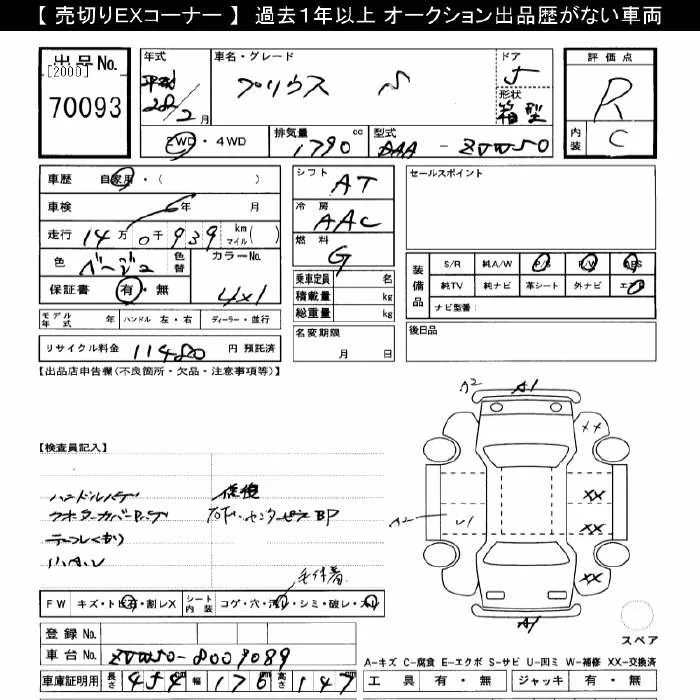 【 売切りEXコーナー 】 過去1年以上 オークション出品歴がない車両
出品No.
[2000]
70093
年式
平成
28年
2月
車名・グレード
プリウス S
ドア
5
形状
箱型
評価点
R
内装
C
2WD・4WD
排気量 cc
1790
型式
DAA - ZVW50
車歴 自家用・( )
車検 年 月
走行 14万0千939 km マイル( )
色 ベージュ
色替
カラーNo.
4X1
保証書 有・無
モデル年式 年 ハンドル 左・右 ディーラー・並行
リサイクル料金 11480 円 預託済
シフト
AT
冷房
AAC
燃料
G
乗車定員 名
積載量 kg
総重量 kg
名変期限
月 日
セールスポイント
装備品
S/R 純A/W P/S P/W ABS
純TV 純ナビ 革シート 外ナビ エアB
ナビ型番:
後日品
【出品店申告欄(不良箇所・欠品・注意事項等)】
【検査員記入】
修復
小キズ
FW キズ・トビ石・割レX
シート内装 コゲ・穴・汚レ・シミ・破レ・スレ
毛付着
A2
A1
XX
XX
A2
U1
XX
XX
A1
スペア
登録No.
車台No. ZVW50-8009089
A-キズ C-腐食 E-エクボ S-サビ U-凹ミ W-補修 XX-交換済
車庫証明用 長さ 454 幅 176 高さ 147
工具 有・無 ジャッキ 有・無